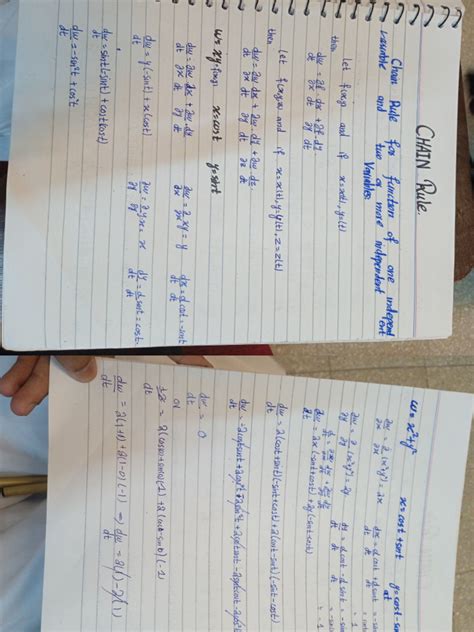 CHAIN Rule
Chain Rule for function of one independent
variable and two or more independent
variables
let f(x,y) and if x=x(t), y=y(t)
then
dw/dt = ∂f/∂x dx/dt + ∂f/∂y dy/dt
Let f(x,y,z) and if x=x(t), y=y(t), z=z(t)
then
dw/dt = ∂w/∂x dx/dt + ∂w/∂y dy/dt + ∂w/∂z dz/dt
w= xy x=cost y=sint
dw/dt = ∂w/∂x dx/dt + ∂w/∂y dy/dt ∂w/∂x = ∂/∂x xy = y dx/dt = d/dt cost = -sint
dw/dt = y(-sint) + x(cost) ∂w/∂y = ∂/∂y yx = x dy/dt = d/dt sint = cost
dw/dt = sint(-sint) + cost(cost)
dw/dt = -sin²t + cos²t
w= x²+y² x= cost + sint y= cost - sint
∂w/∂x = ∂/∂x (x²+y²) = 2x dx/dt = d/dt cost + d/dt sint
∂w/∂y = ∂/∂y (x²+y²) = 2y dy/dt = d/dt cost - d/dt sint
dw/dt = 2x(-sint+cost) + 2y(-sint-cost)
dw/dt = 2(cost+sint)(-sint+cost) + 2(cost-sint)(-sint-cost)
dw/dt = 0
or
= 2(cos0+sin0)(1) + 2(cos0-sin0)(-1)
dw/dt = 2(1+0) + 2(1-0)(-1) ⇒ dw/dt = 2(1) - 2(1)